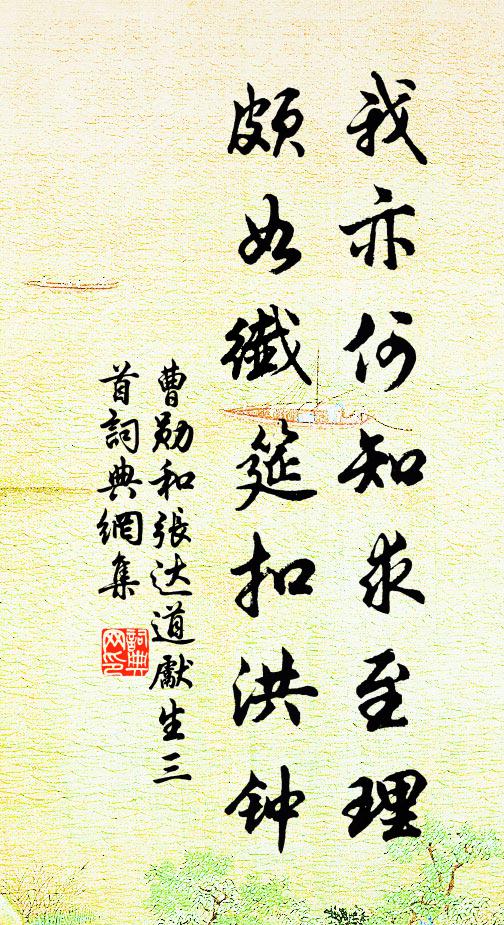 我亦何知求至理
颇如纎筵扣洪钟
曹勋和張达道獻生三
首詞典網集
詞典
网印